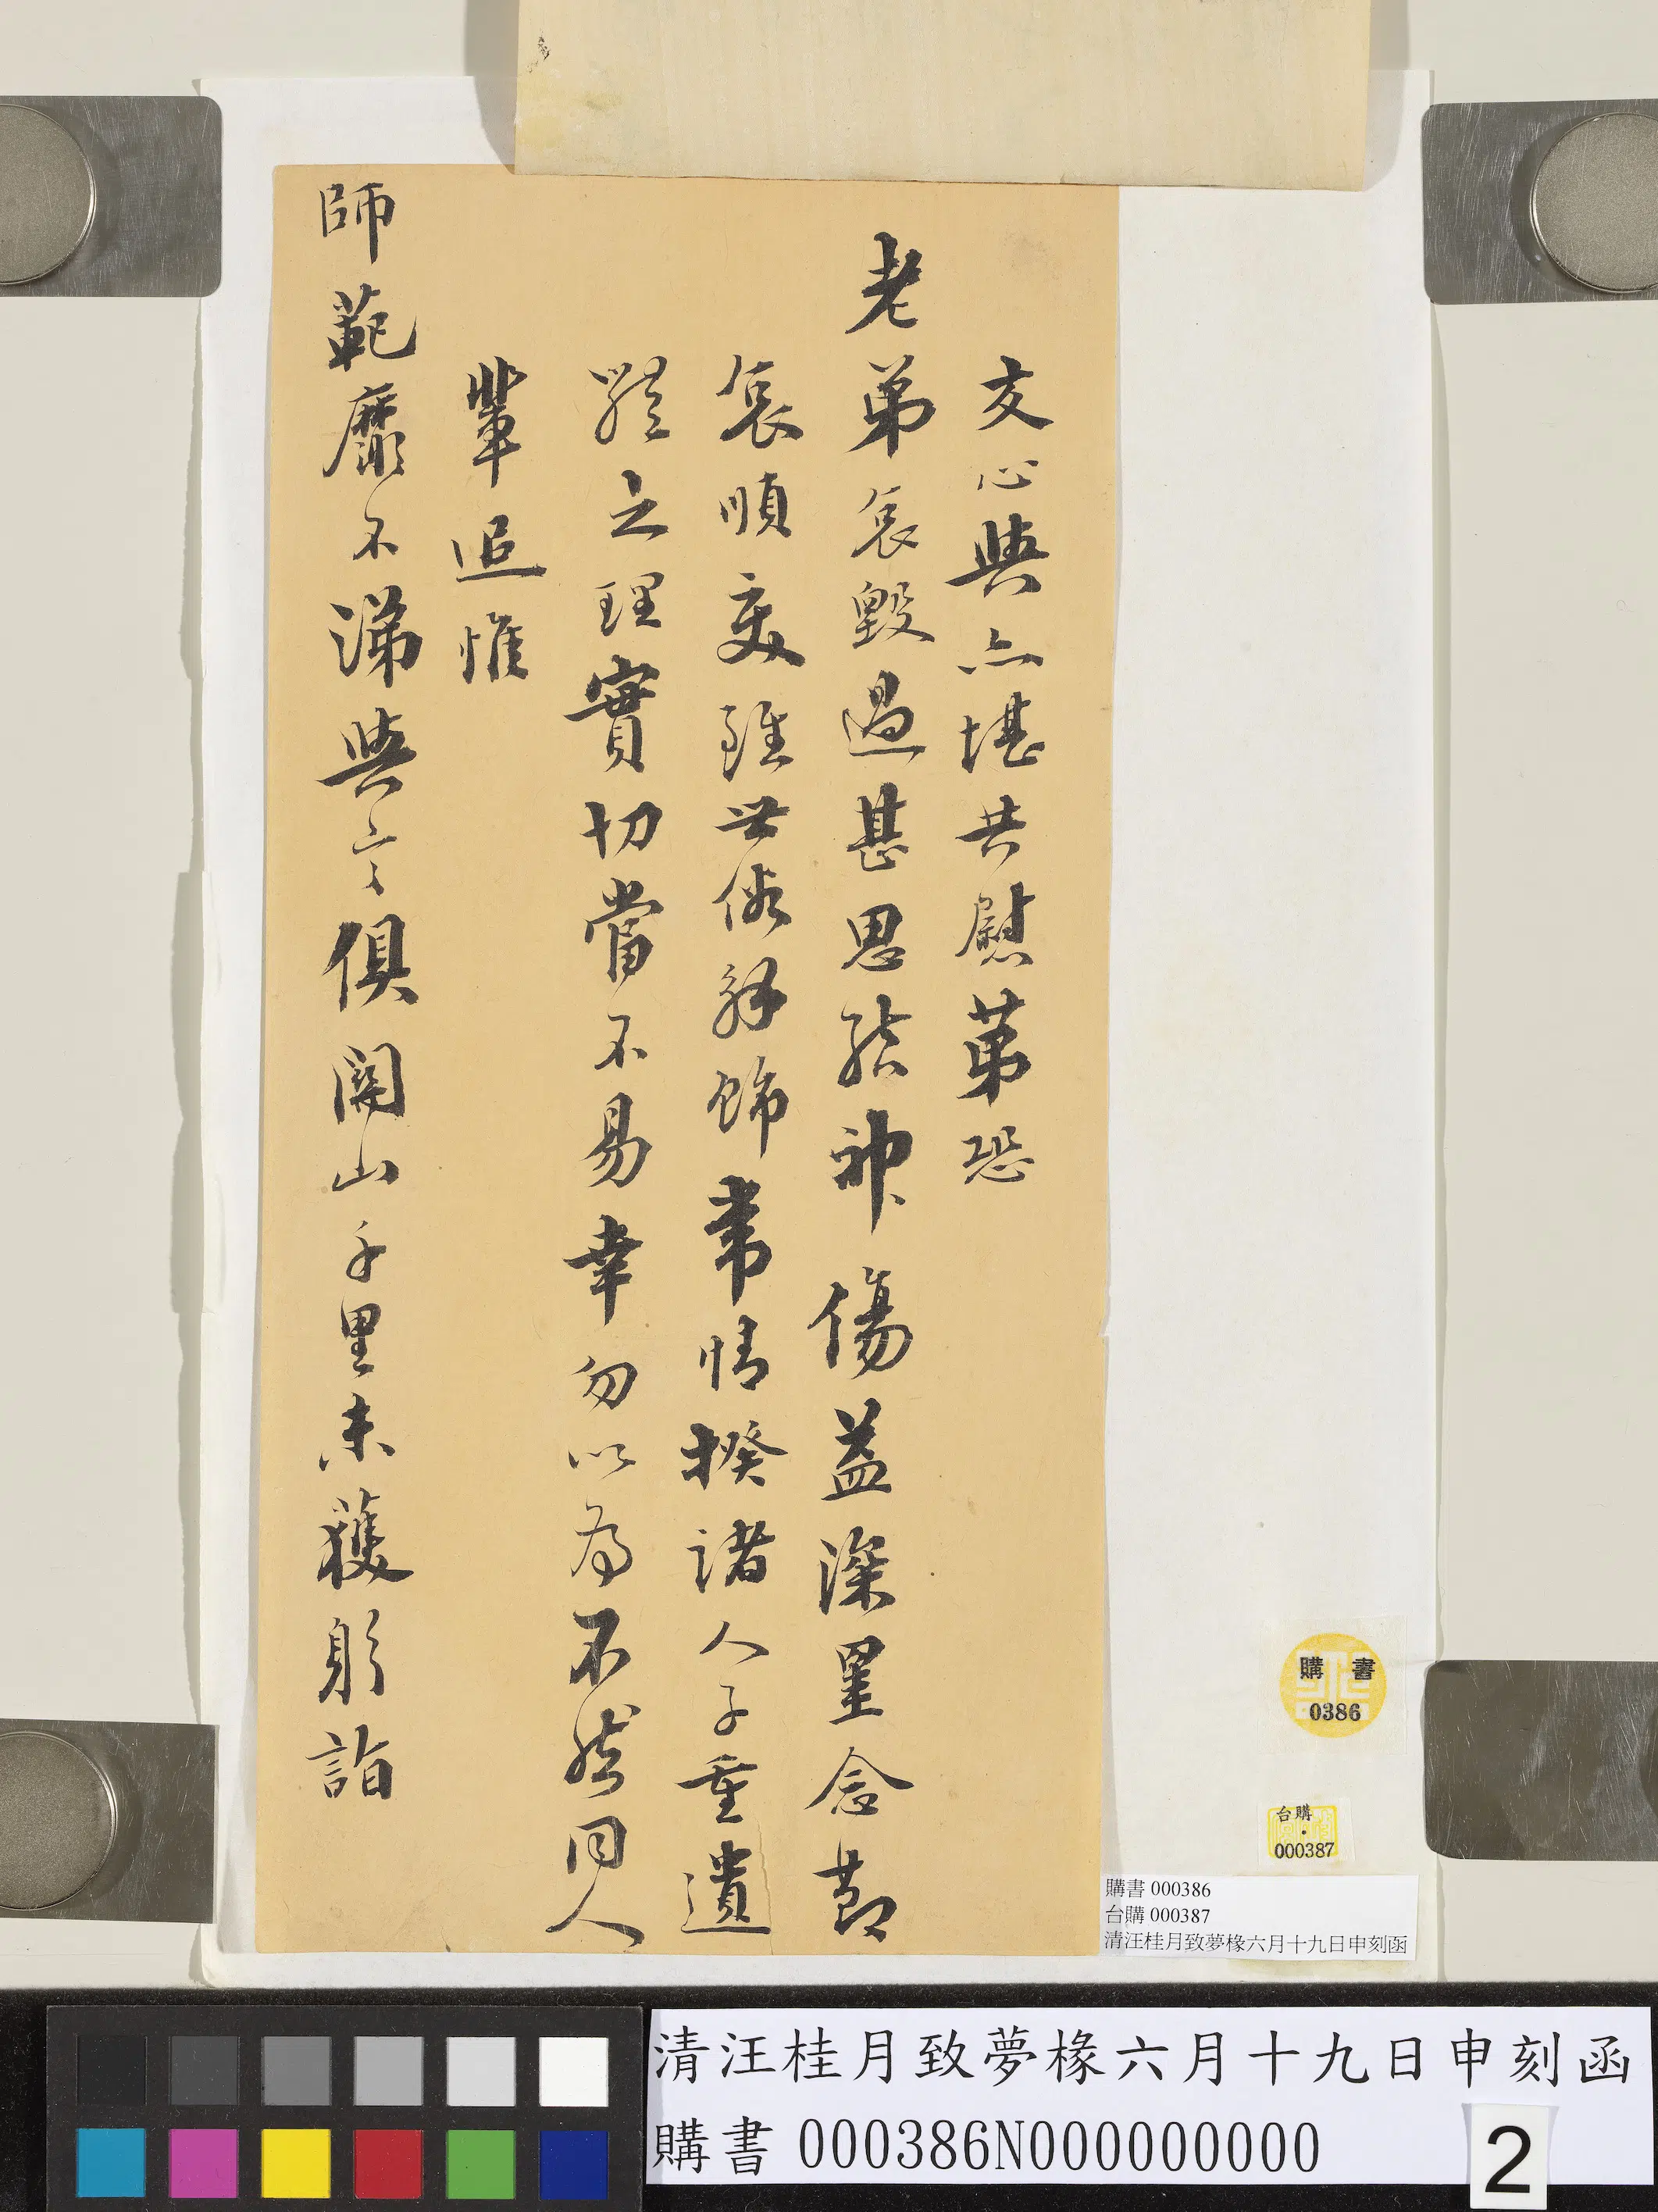 交心與亦堪共慰第恐
老弟哀毀過甚思能神傷益深罣念節
哀順變雖世俗解飾常情揆諸人子重遺
體之理實切當不易幸勿以為不然同人
輩追惟
師範靡不涕與言俱關山千里未獲躬詣
購書
0386
台購
000387
購書 000386
台購 000387
清汪桂月致夢椽六月十九日申刻函
清汪桂月致夢椽六月十九日申刻函
購書 000386N000000000
2